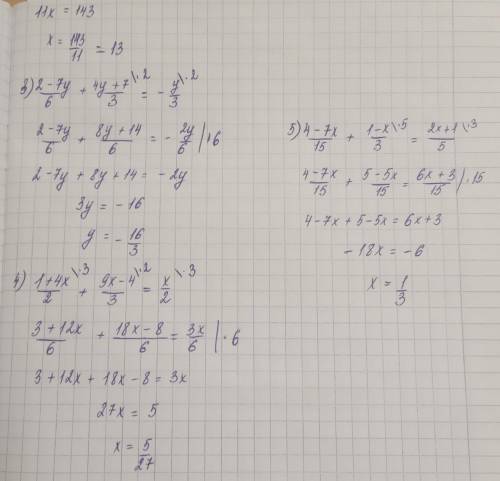 11x = 143
x = 143/11 = 13
3) (2-7y)/6 + (4y+7)/3 \·2 = - y/3 \·2
(2-7y)/6 + (8y+14)/6 = - 2y/6 | ·6
2-7y + 8y + 14 = - 2y
3y = - 16
y = - 16/3
4) (1+4x)/2 \·3 + (9x-4)/3 \·2 = x/2 \·3
(3+12x)/6 + (18x-8)/6 = 3x/6 | ·6
3 + 12x + 18x - 8 = 3x
27x = 5
x = 5/27
5) (4-7x)/15 + (1-x)/3 \·5 = (2x+1)/5 \·3
(4-7x)/15 + (5-5x)/15 = (6x+3)/15 | ·15
4-7x + 5-5x = 6x+3
- 18x = -6
x = 1/3